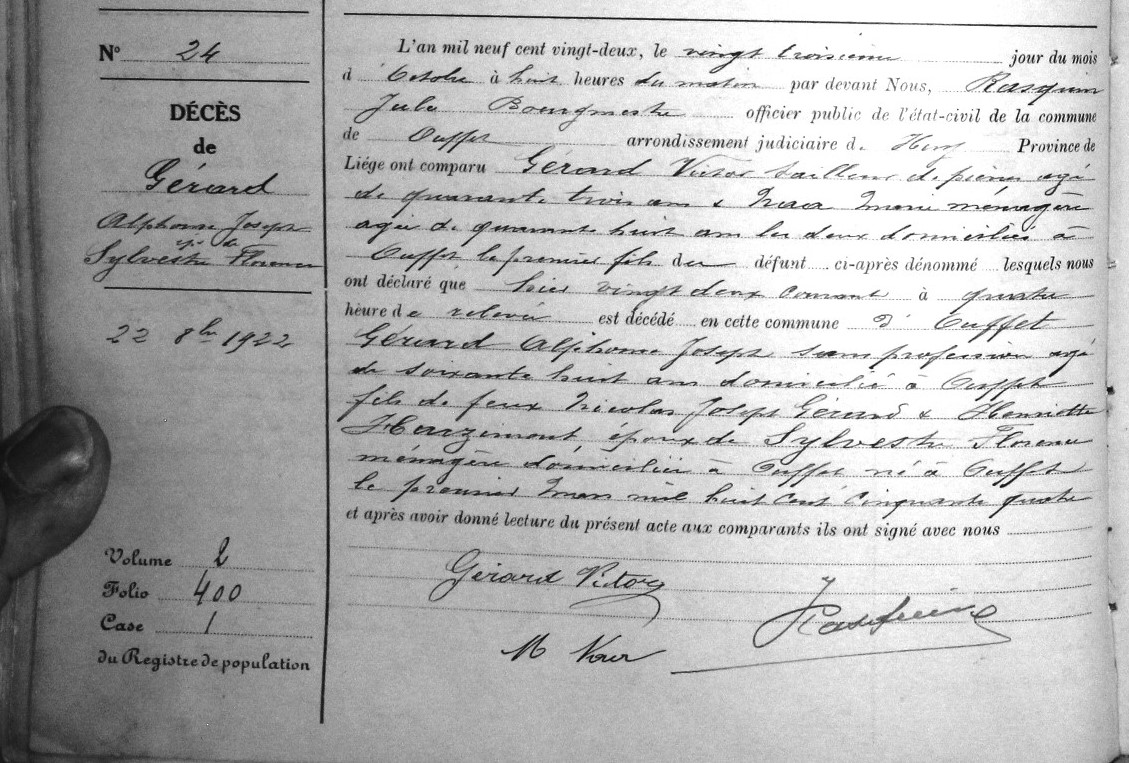 N° 24
DÉCÈS
de
Gérard
Alphonse Joseph
épx de
Sylvestre Florence
22 8bre 1922
Volume 2
Folio 400
Case 1
du Registre de population
L'an mil neuf cent vingt-deux, le vingt troisième jour du mois
d'Octobre à huit heures du matin par devant Nous, Rasquin
Jules Bourgmestre officier public de l'état-civil de la commune
de Ouffet arrondissement judiciaire de Huy Province de
Liége ont comparu Gérard Victor tailleur de pierres agé
de quarante trois ans & Marie ménagère
agée de quarante huit ans les deux domiciliés à
Ouffet le premier fils du défunt ci-après dénommé lesquels nous
ont déclaré que hier vingt deux courant à quatre
heure de relevée est décédé en cette commune d'Ouffet
Gérard Alphonse Joseph sans profession agé
de soixante huit ans domicilié à Ouffet
fils de feux Nicolas Joseph Gérard & Henriette
Harzimont époux de Sylvestre Florence
ménagère domiciliée à Ouffet né à Ouffet
le premier mars mil huit cent cinquante quatre
et après avoir donné lecture du présent acte aux comparants ils ont signé avec nous
Gérard Victor
Rasquin
M